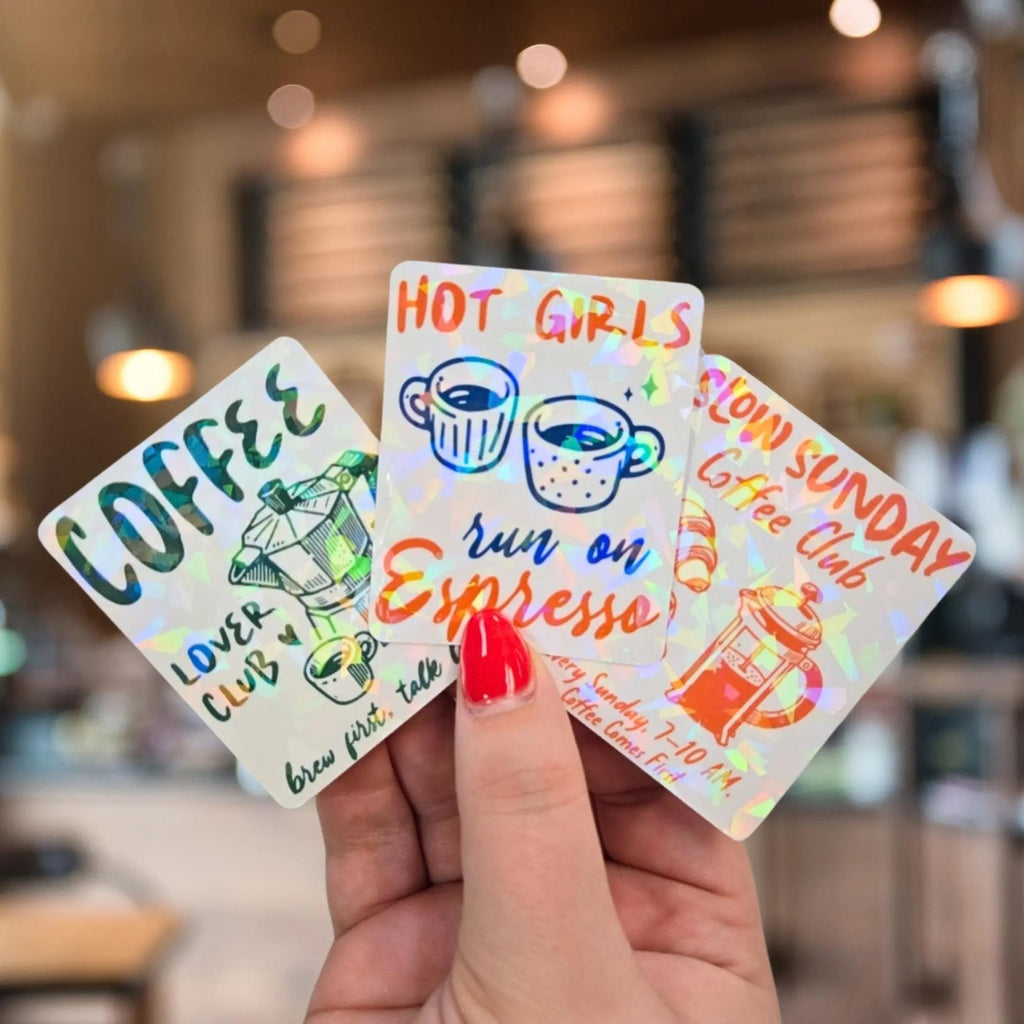 COFFEE
LOVER
CLUB
brew first, talk
HOT GIRLS
run on
Espresso
SLOW SUNDAY
Coffee Club
very Sunday, 7–10 AM.
Coffee Comes First